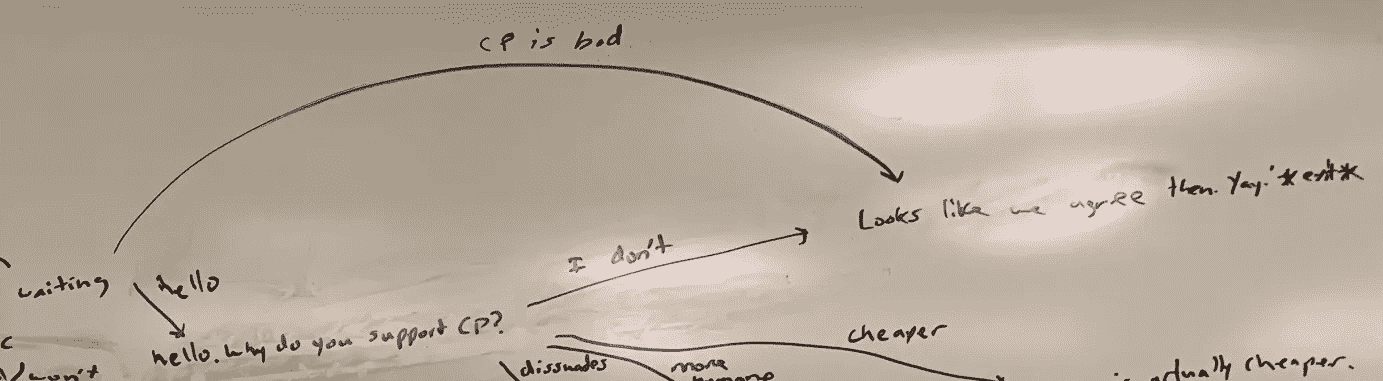 CP is bad
Looks like we agree then. Yay! *exit*
I don't
waiting
hello
hello. Why do you support CP?
cheaper
dissuades
more
humane
actually cheaper.
won't